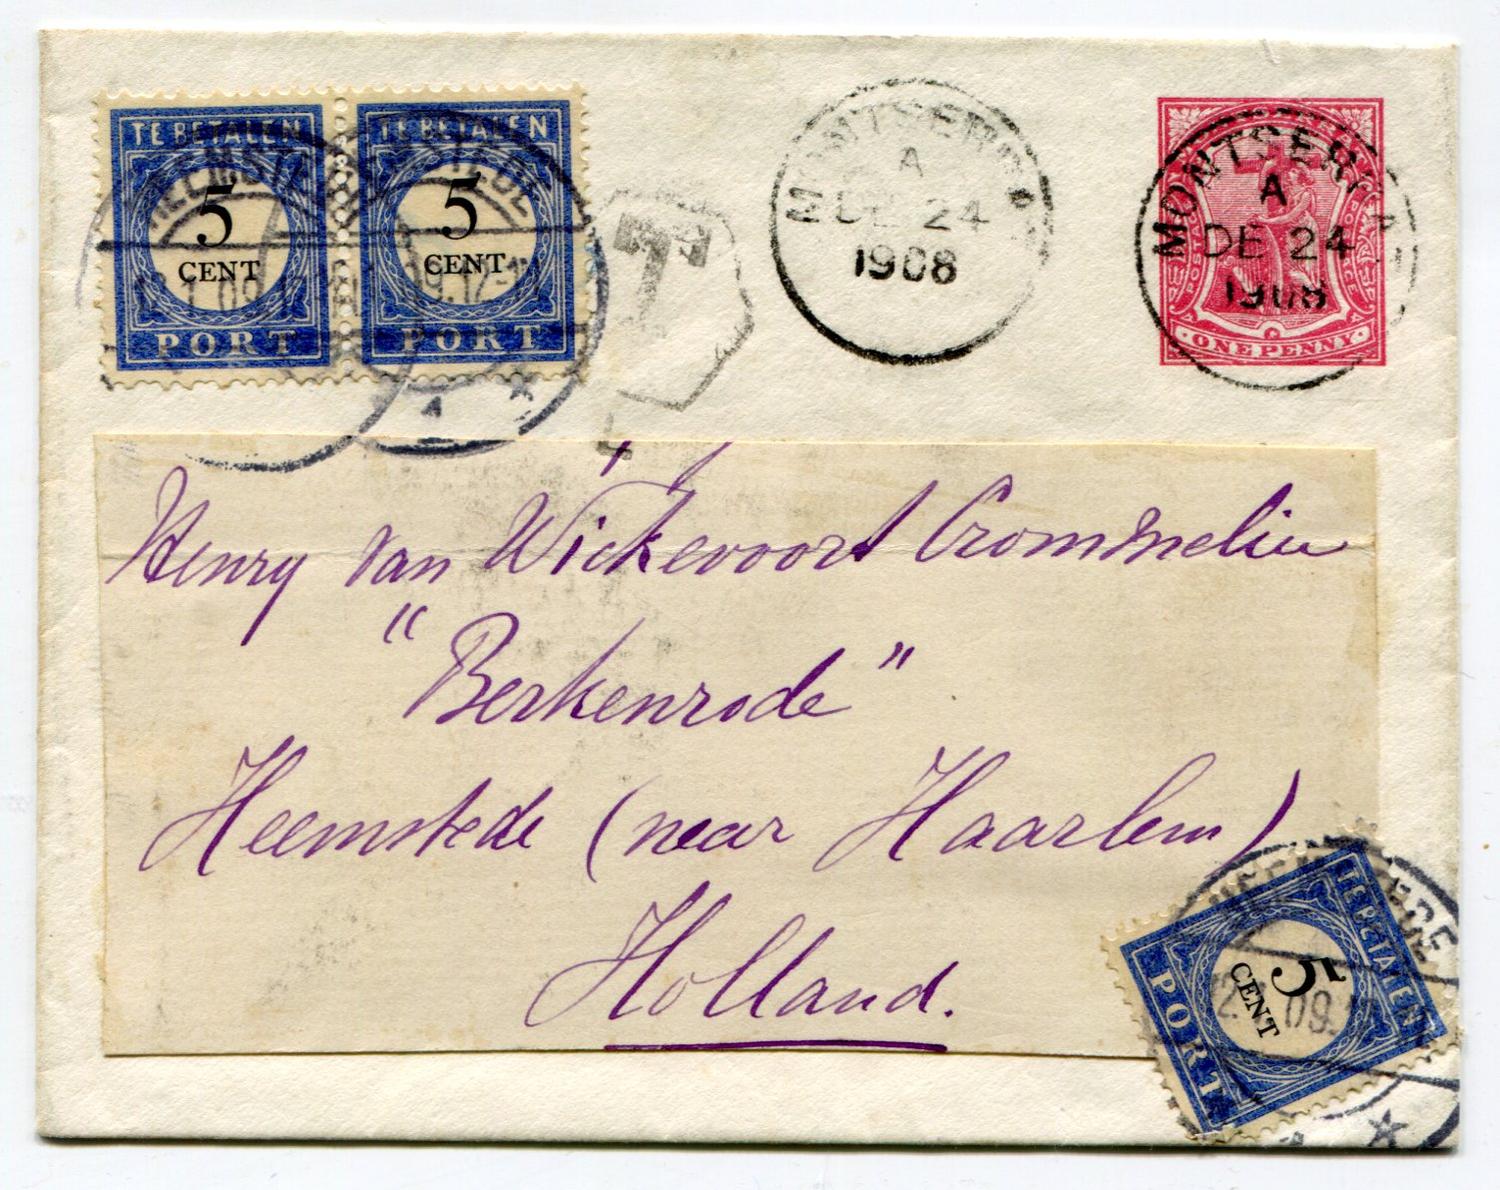 TE BETALEN
5
CENT
PORT
TE BETALEN
5
CENT
PORT
HEEMSTEDE
T
MONTSERRA
A
DE 24
1908
MONTSERRA
A
DE 24
1908
POSTAGE
ONE PENNY
Henry van Wickevoort Crommelin
"Berkenrode"
Heemstede (near Haarlem)
Holland.
TE BETALEN
5
CENT
PORT